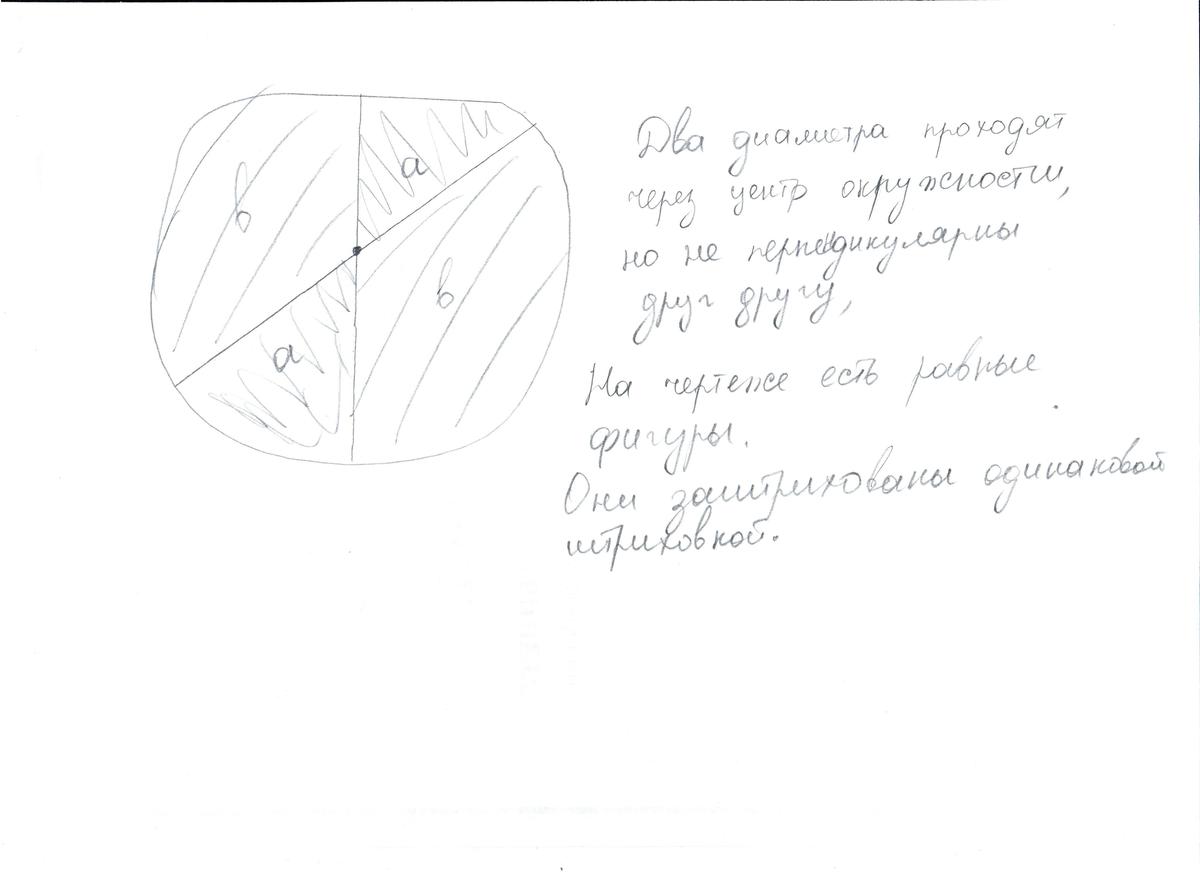 в
а
а
в
Два диаметра проходят
через центр окружности,
но не перпендикулярны
друг другу,
На чертеже есть равные
фигуры.
Они заштрихованы одинаковой
штриховкой.